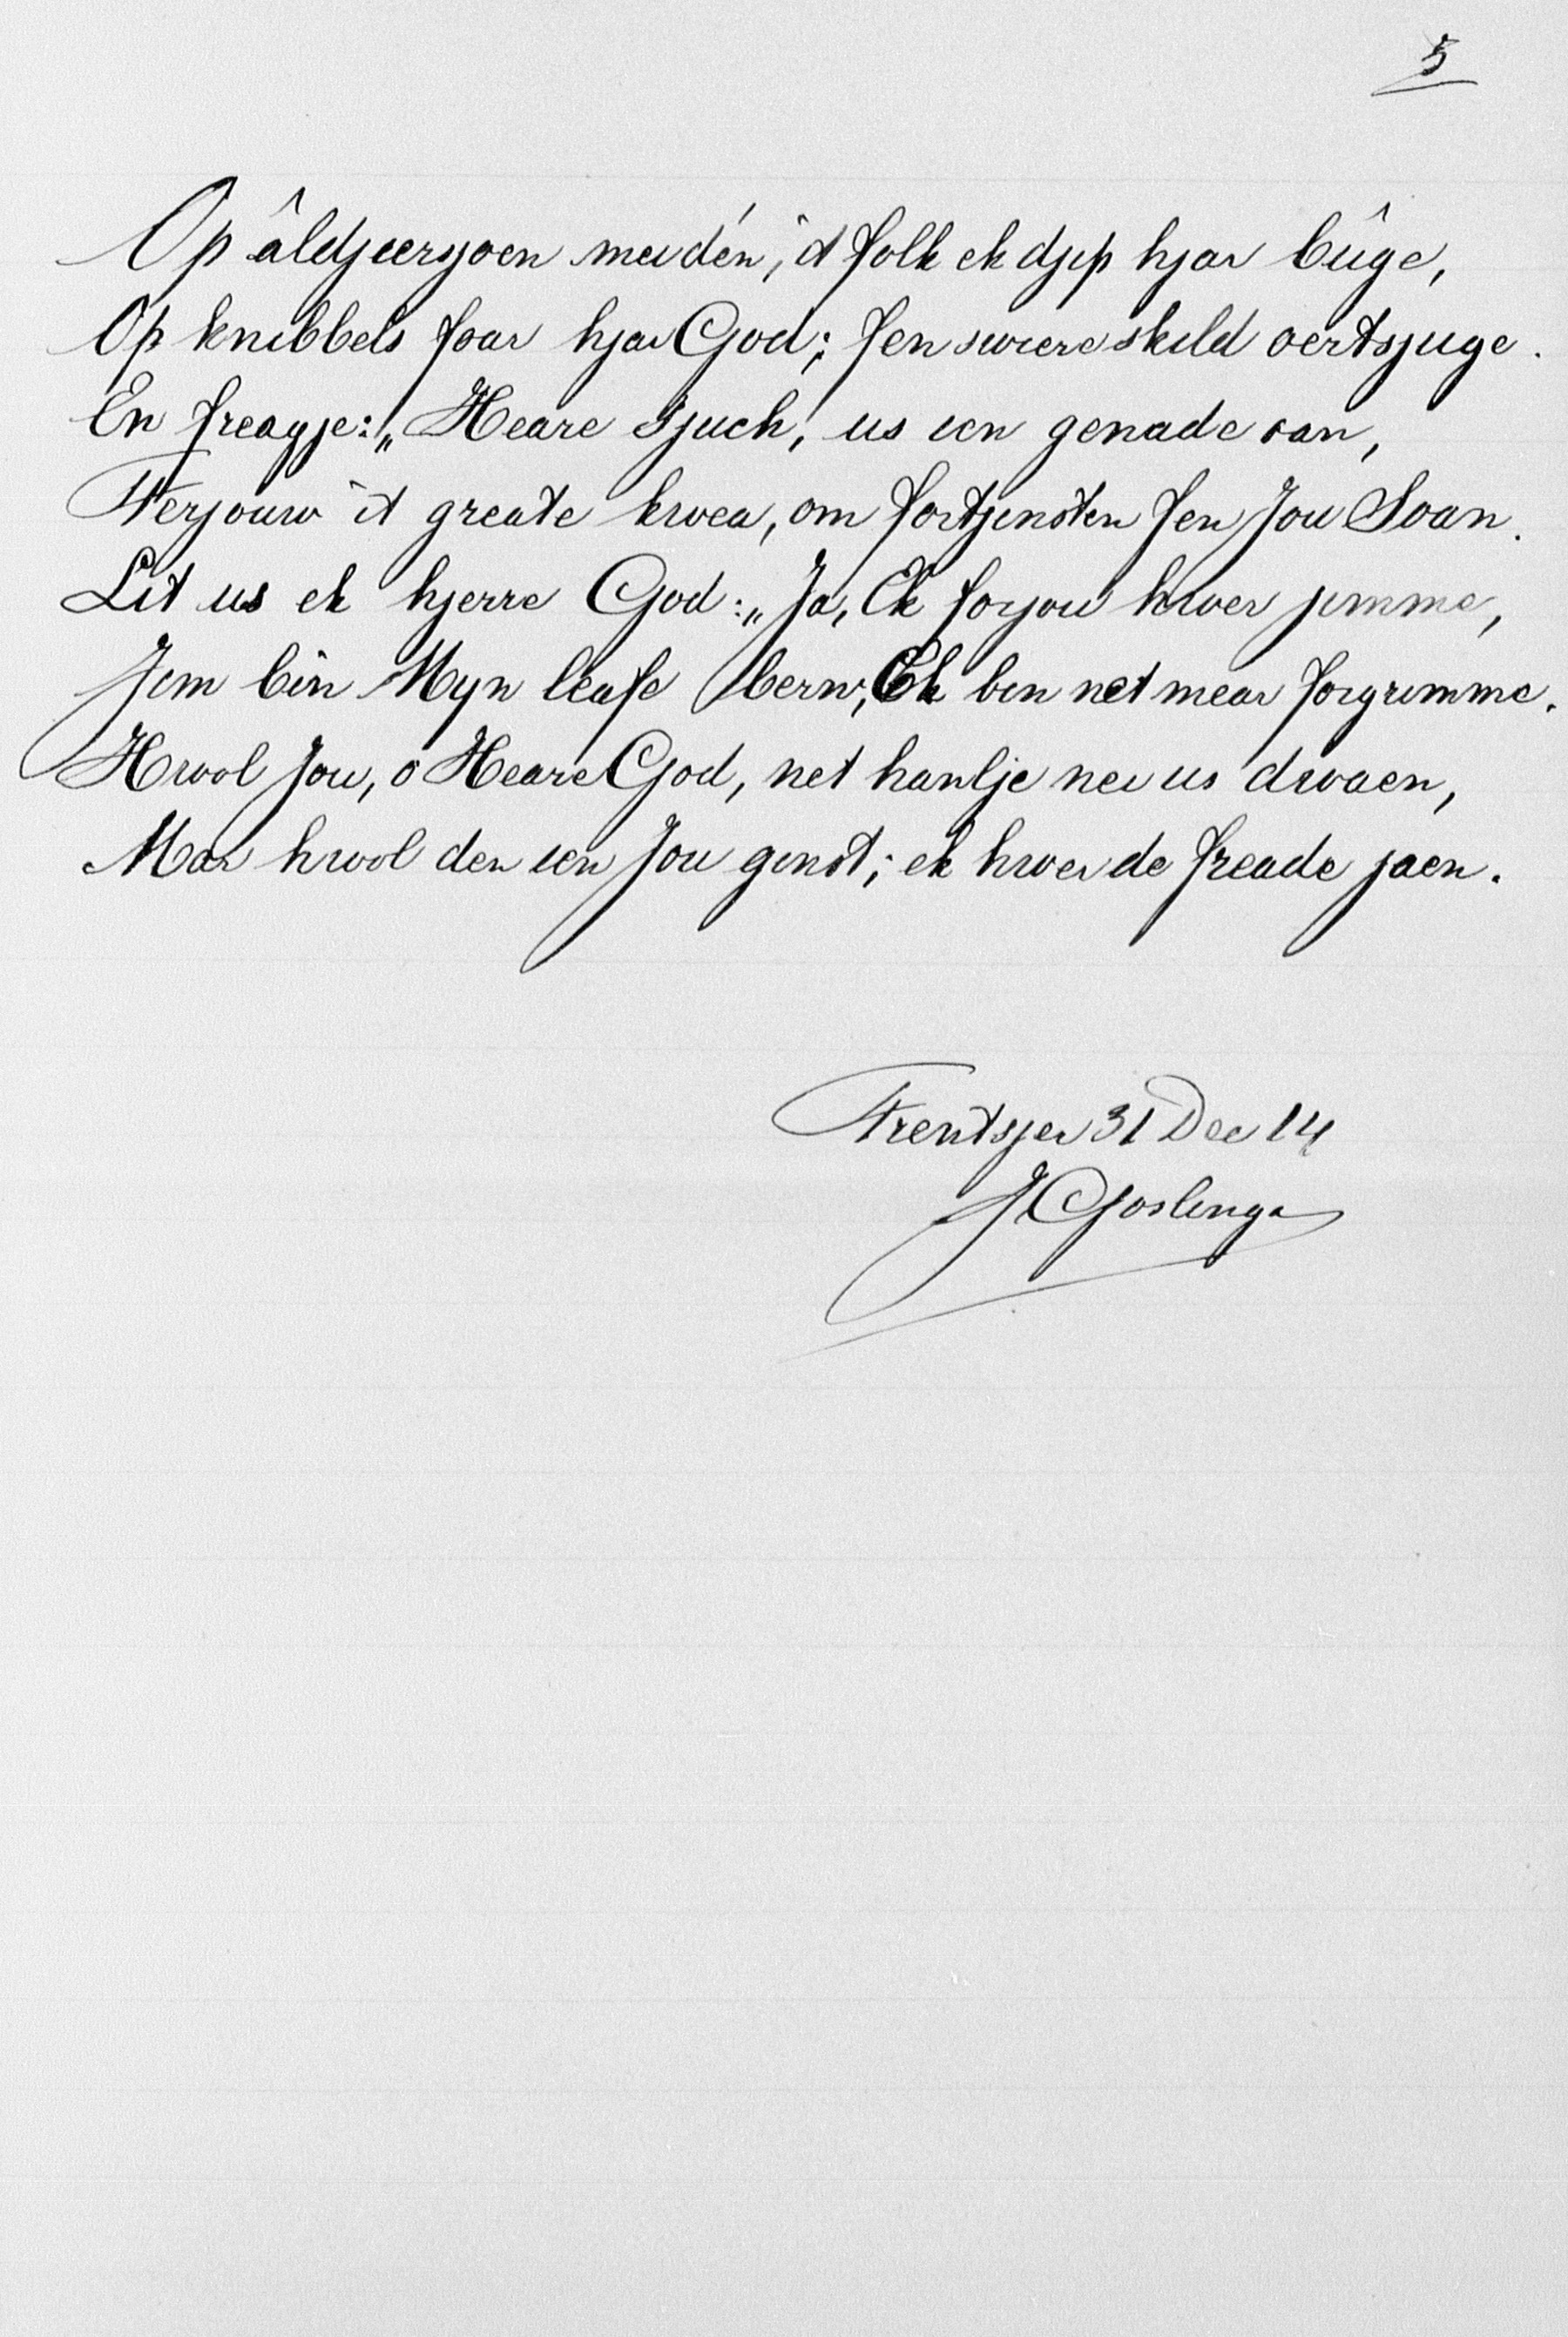 5
Op âldjiersjoen mei dén, 't folk ek djip hjar bûge,
Op knibbels foar hjar God; fen swiere skild oertsjuge.
En freagje: „Heare sjuch, us ien genade oan,
Ferjouw it greate kwea, om fortjinsten fen Jou Soan.
Lit us ek hjerre God: „Ja, Ik forjou hwer jimme,
Jim bin Myn leafe bern, Ik bin net mear forgrimme.
Hwol Jou, o Heare God, net hanlje nei us dwaen,
Mar hwol den ien Jou ginst; ek hwer de freade jaen.
Frentsjer 31 Dec 14
J Goslinga